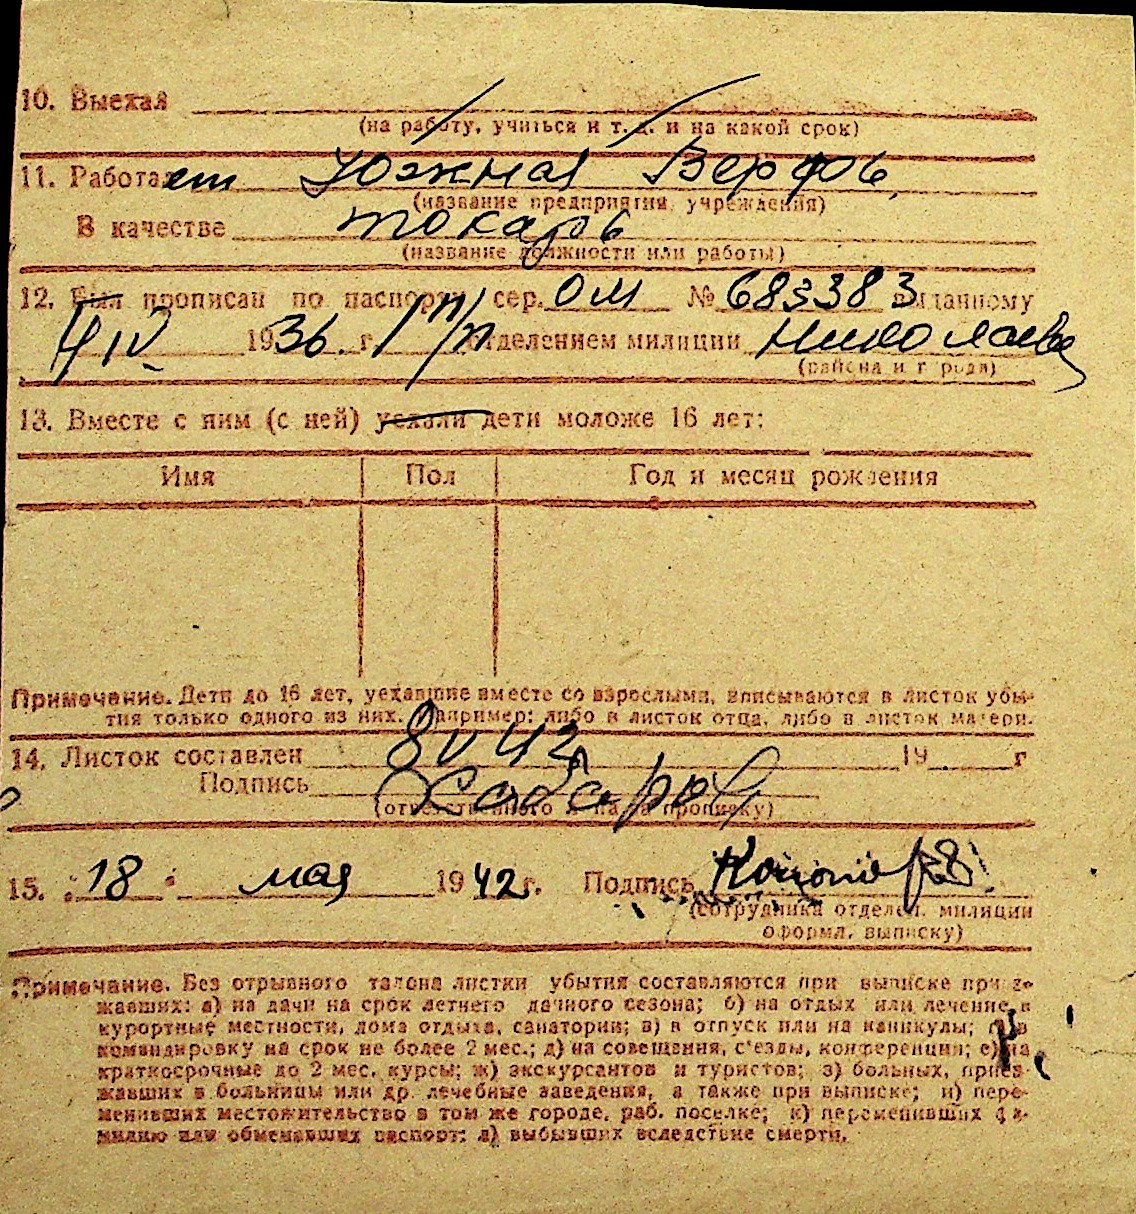 10. Выехал
(на работу, учиться и т. д. и на какой срок)
11. Работает Южная Верфь
(название предприятия, учреждения)
В качестве токарь
(название должности или работы)
12. Был прописан по паспорту сер. ОМ № 683383 выданному
IV 1936 г. отделением милиции Николаев
(района и города)
13. Вместе с ним (с ней) уехали дети моложе 16 лет:
Имя Пол Год и месяц рождения
Примечание. Дети до 16 лет, уехавшие вместе со взрослыми, вписываются в листок убы-
тия только одного из них. Например: либо в листок отца, либо в листок матери.
14. Листок составлен 8 V 42 19 г
Подпись
(ответственного за прописку)
15. "18" мая 1942 г. Подпись
(сотрудника отделен. милиции
оформл. выписку)
Примечание. Без отрывного талона листки убытия составляются при выписке приез-
жавших: а) на дачи на срок летнего дачного сезона; б) на отдых или лечение в
курортные местности, дома отдыха, санатории; в) в отпуск или на каникулы; г) в
командировку на срок не более 2 мес.; д) на совещания, с'езды, конференции; е) на
краткосрочные до 2 мес. курсы; ж) экскурсантов и туристов; з) больных, приез-
жавших в больницы или др. лечебные заведения, а также при выписке; и) пере-
менивших местожительство в том же городе, раб. поселке; к) переменивших фа-
милию или обменявших паспорт; л) выбывших вследствие смерти.